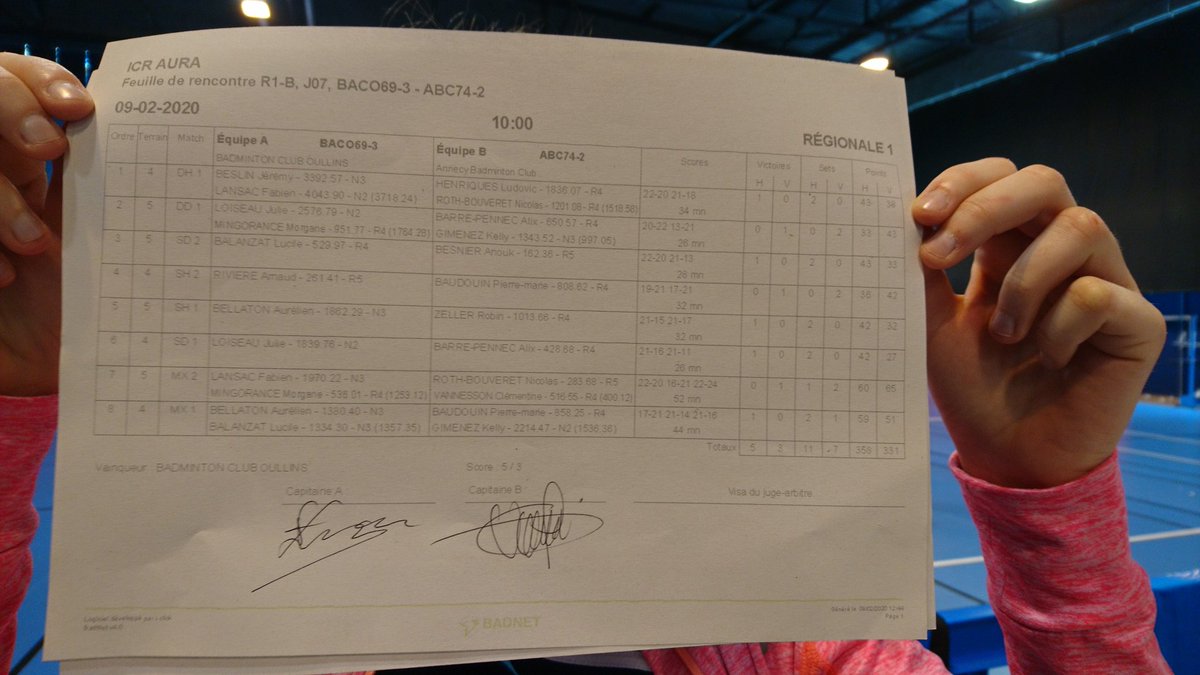 ICR AURA
Feuille de rencontre R1-B, J07, BACO69-3 - ABC74-2
09-02-2020
10:00
RÉGIONALE 1
Ordre Terrain Match Équipe A BACO69-3 Équipe B ABC74-2 Scores Victoires Sets Points
BADMINTON CLUB OULLINS Annecy Badminton Club H V H V H V
1 4 DH 1 BESLIN Jérémy - 3392.57 - N3 HENRIQUES Ludovic - 1836.07 - R4 22-20 21-18 1 0 2 0 43 38
LANSAC Fabien - 4043.90 - N2 (3718.24) ROTH-BOUVERET Nicolas - 1201.08 - R4 (1518.58) 34 mn
2 5 DD 1 LOISEAU Julie - 2576.79 - N2 BARRE-PENNEC Alix - 650.57 - R4 20-22 13-21 0 1 0 2 33 43
MINGORANCE Morgane - 951.77 - R4 (1764.28) GIMENEZ Kelly - 1343.52 - N3 (997.05) 26 mn
3 5 SD 2 BALANZAT Lucile - 529.97 - R4 BESNIER Anouk - 162.36 - R5 22-20 21-13 1 0 2 0 43 33
26 mn
4 4 SH 2 RIVIERE Arnaud - 261.41 - R5 BAUDOUIN Pierre-marie - 808.62 - R4 19-21 17-21 0 1 0 2 36 42
32 mn
5 5 SH 1 BELLATON Aurélien - 1862.29 - N3 ZELLER Robin - 1013.68 - R4 21-15 21-17 1 0 2 0 42 32
32 mn
6 4 SD 1 LOISEAU Julie - 1839.76 - N2 BARRE-PENNEC Alix - 428.68 - R4 21-16 21-11 1 0 2 0 42 27
26 mn
7 5 MX 2 LANSAC Fabien - 1970.22 - N3 ROTH-BOUVERET Nicolas - 283.68 - R5 22-20 16-21 22-24 0 1 1 2 60 65
MINGORANCE Morgane - 536.01 - R4 (1253.12) VANNESSON Clémentine - 516.55 - R4 (400.12) 52 mn
8 4 MX 1 BELLATON Aurélien - 1380.40 - N3 BAUDOUIN Pierre-marie - 858.25 - R4 17-21 21-14 21-16 1 0 2 1 59 51
BALANZAT Lucile - 1334.30 - N3 (1357.35) GIMENEZ Kelly - 2214.47 - N2 (1536.36) 44 mn
Totaux 5 3 11 7 358 331
Vainqueur : BADMINTON CLUB OULLINS Score : 5 / 3
Capitaine A Capitaine B Visa du juge-arbitre
Logiciel développé par i-click
BADNET
Page 1